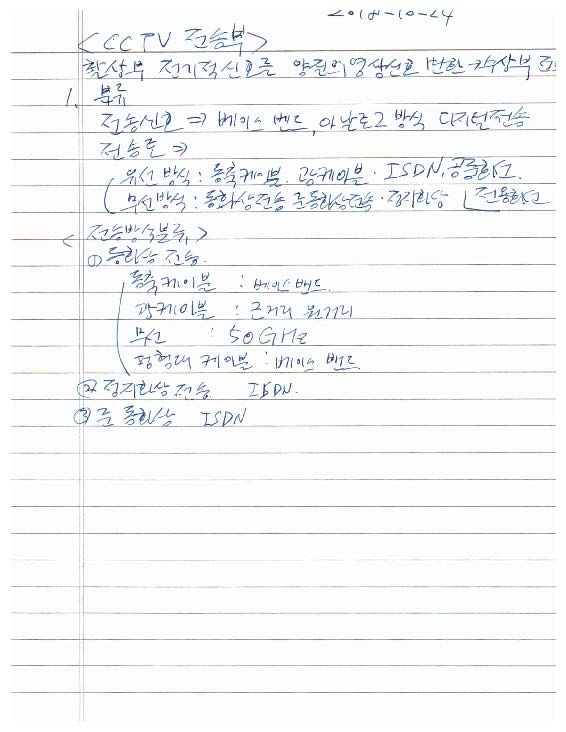 2018-10-24
<CCTV 전송부>
촬상부 전기적신호를 양질의 영상신호 변환→수상부
1. 분류
전송신호 ⇒ 베이스 밴드, 아날로그 방식 디지털전송
전송로 ⇒
유선 방식 : 동축케이블. 광케이블 · ISDN, 공중회선
무선방식 : 동화상전송 준동화상전송 · 정지화상 전용회선
< 전송방식분류 >
① 동화상 전송.
동축케이블 : 베이스 밴드
광케이블 : 근거리 원거리
무선 : 50GHz
평형대 케이블 : 베이스 밴드
② 정지화상 전송 ISDN.
③ 준 동화상 ISDN